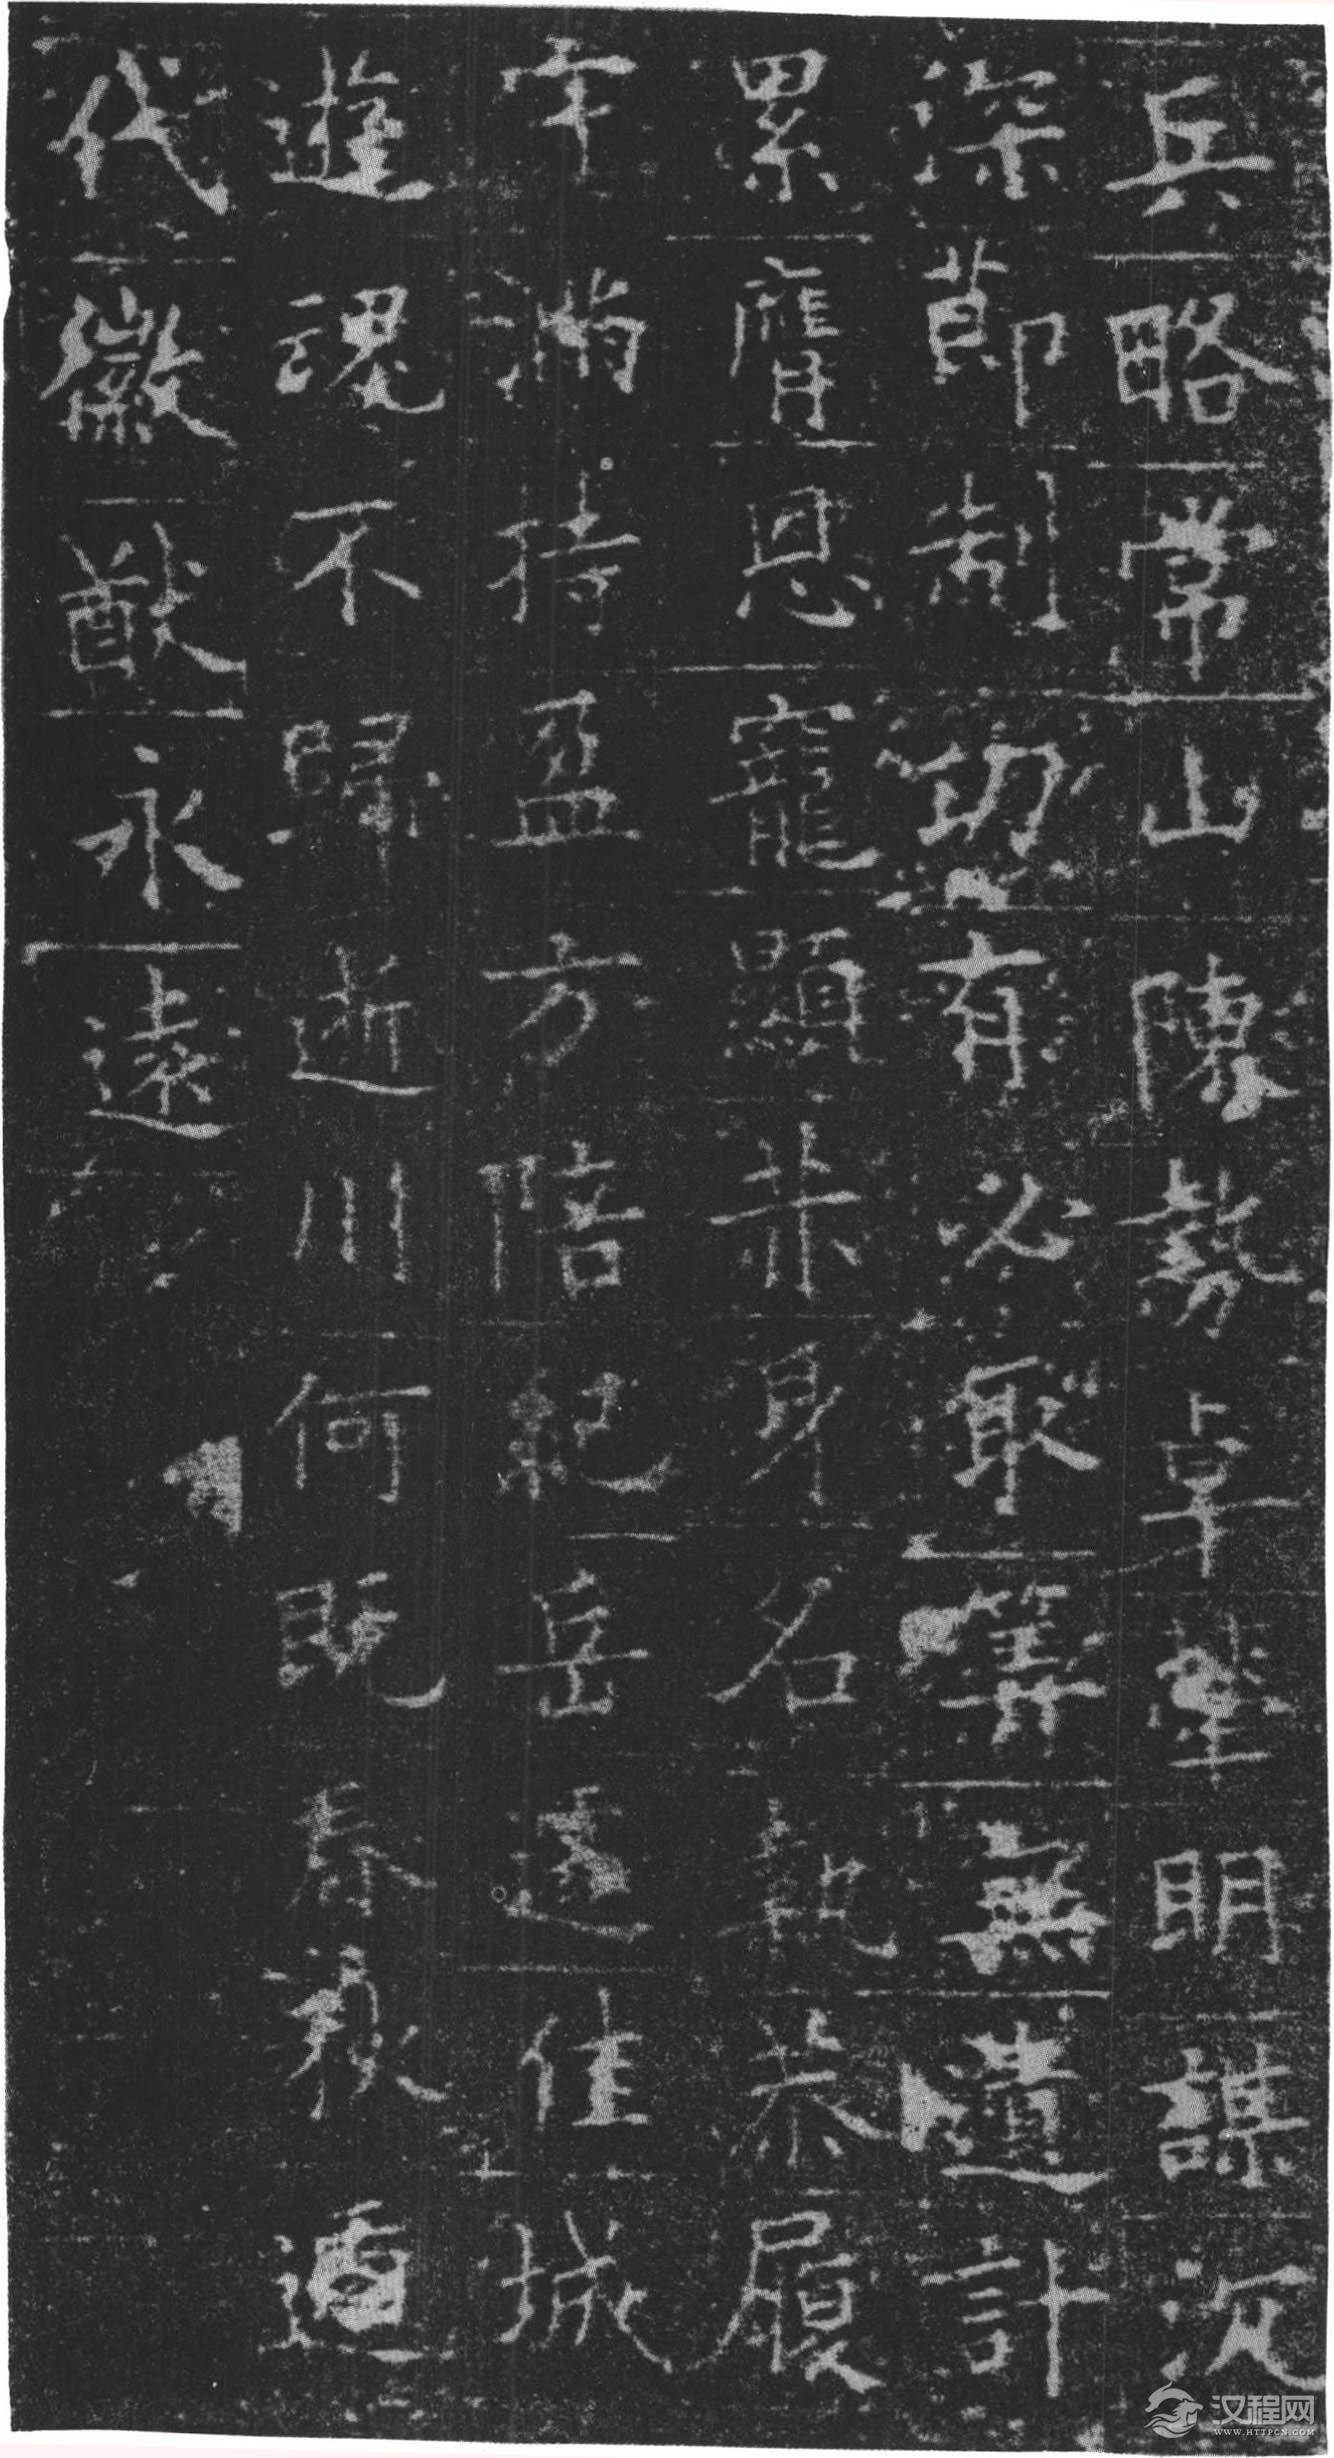 兵略常山陳勢卓犖明謀沉
深節制功有必取筭無遺計
累膺恩寵顯赤身名執恭履
守滿持盈方陪紀岳遽佳城
遊魂不歸逝川何既春秋遞
代徽猷永遠
汉程网
WWW.HTTPCN.COM